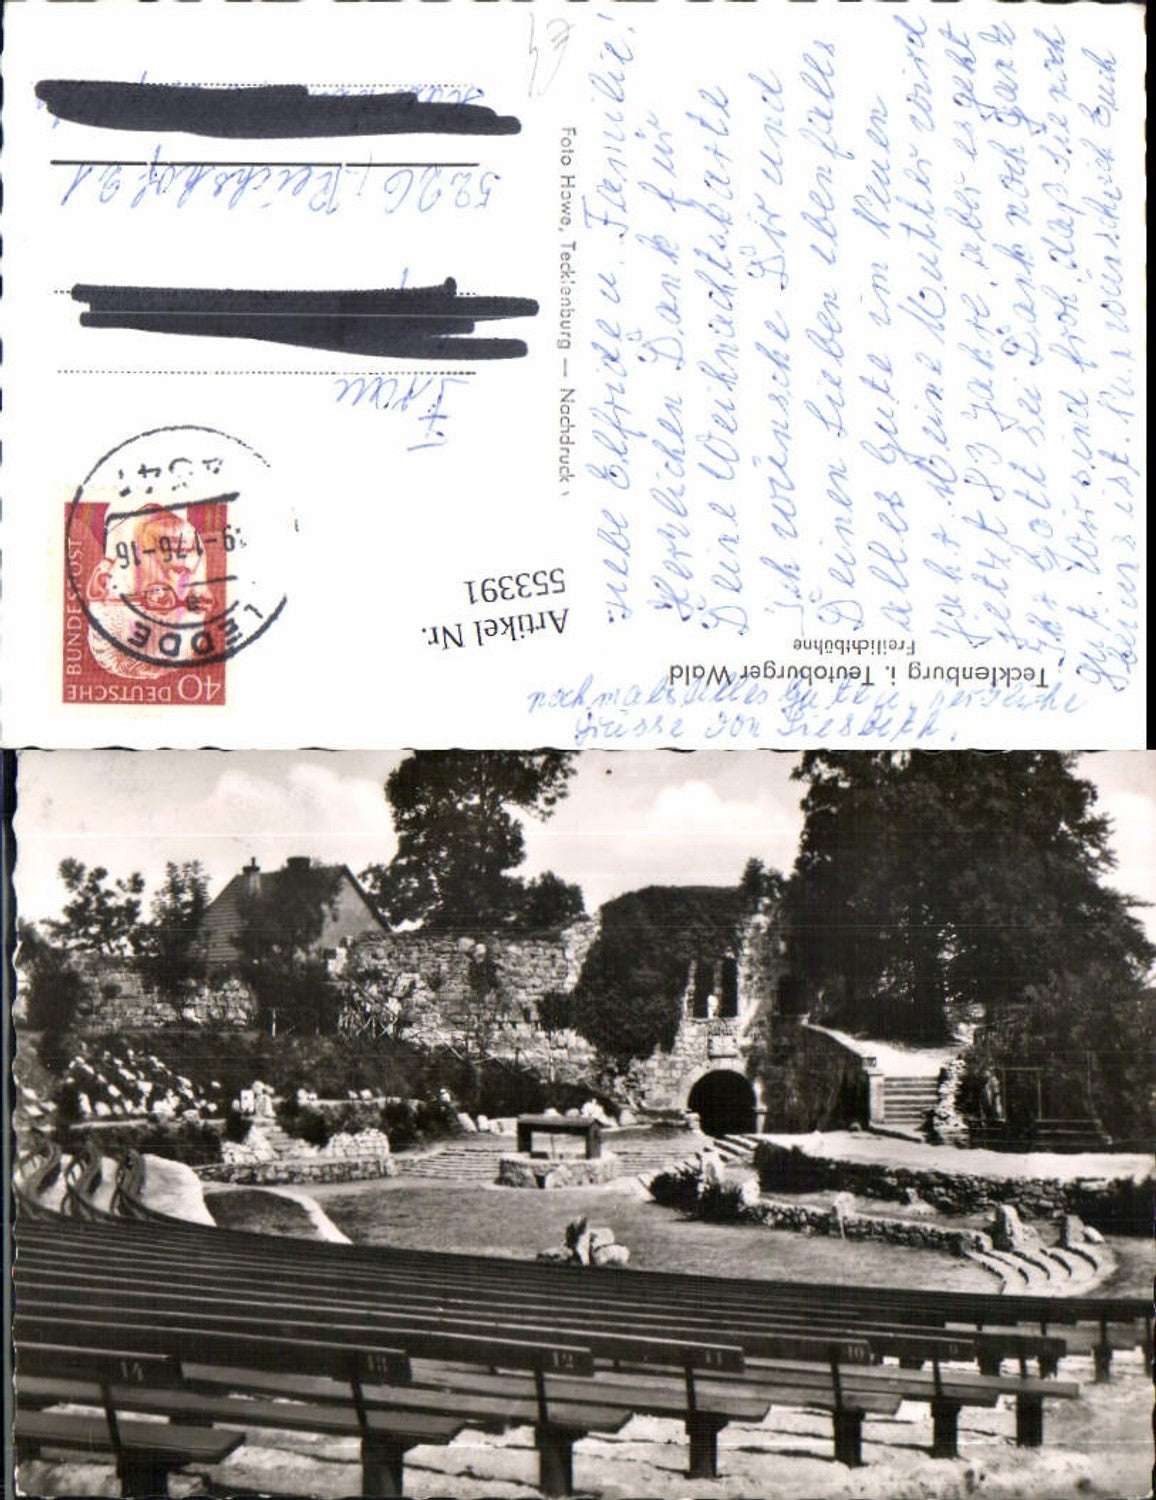 Tecklenburg i. Teutoburger Wald
Freilichtbühne
Liebe Elfride u. Familie!
Herzlichen Dank für
Deine Weihnachtskarte
Ich wünsche Dir und
Deinen Lieben ebenfalls
alles Gute im Neuen
Jahr. Meine Mutter wird
jetzt 83 Jahre, aber es geht
Ihr Gott sei Dank noch ganz
gut. Wir sind froh, daß sie noch
bei uns ist. Nun wünsche ich Euch
nochmals alles Gute u. herzliche
Grüsse von Liesbeth.
Foto Howe, Tecklenburg — Nachdruck
Artikel Nr.
553391
40 DEUTSCHE
BUNDESPOST
LEDDE
19-1.76-16
Frau
5226 Reichshof 21
14
13
12
11
10
9